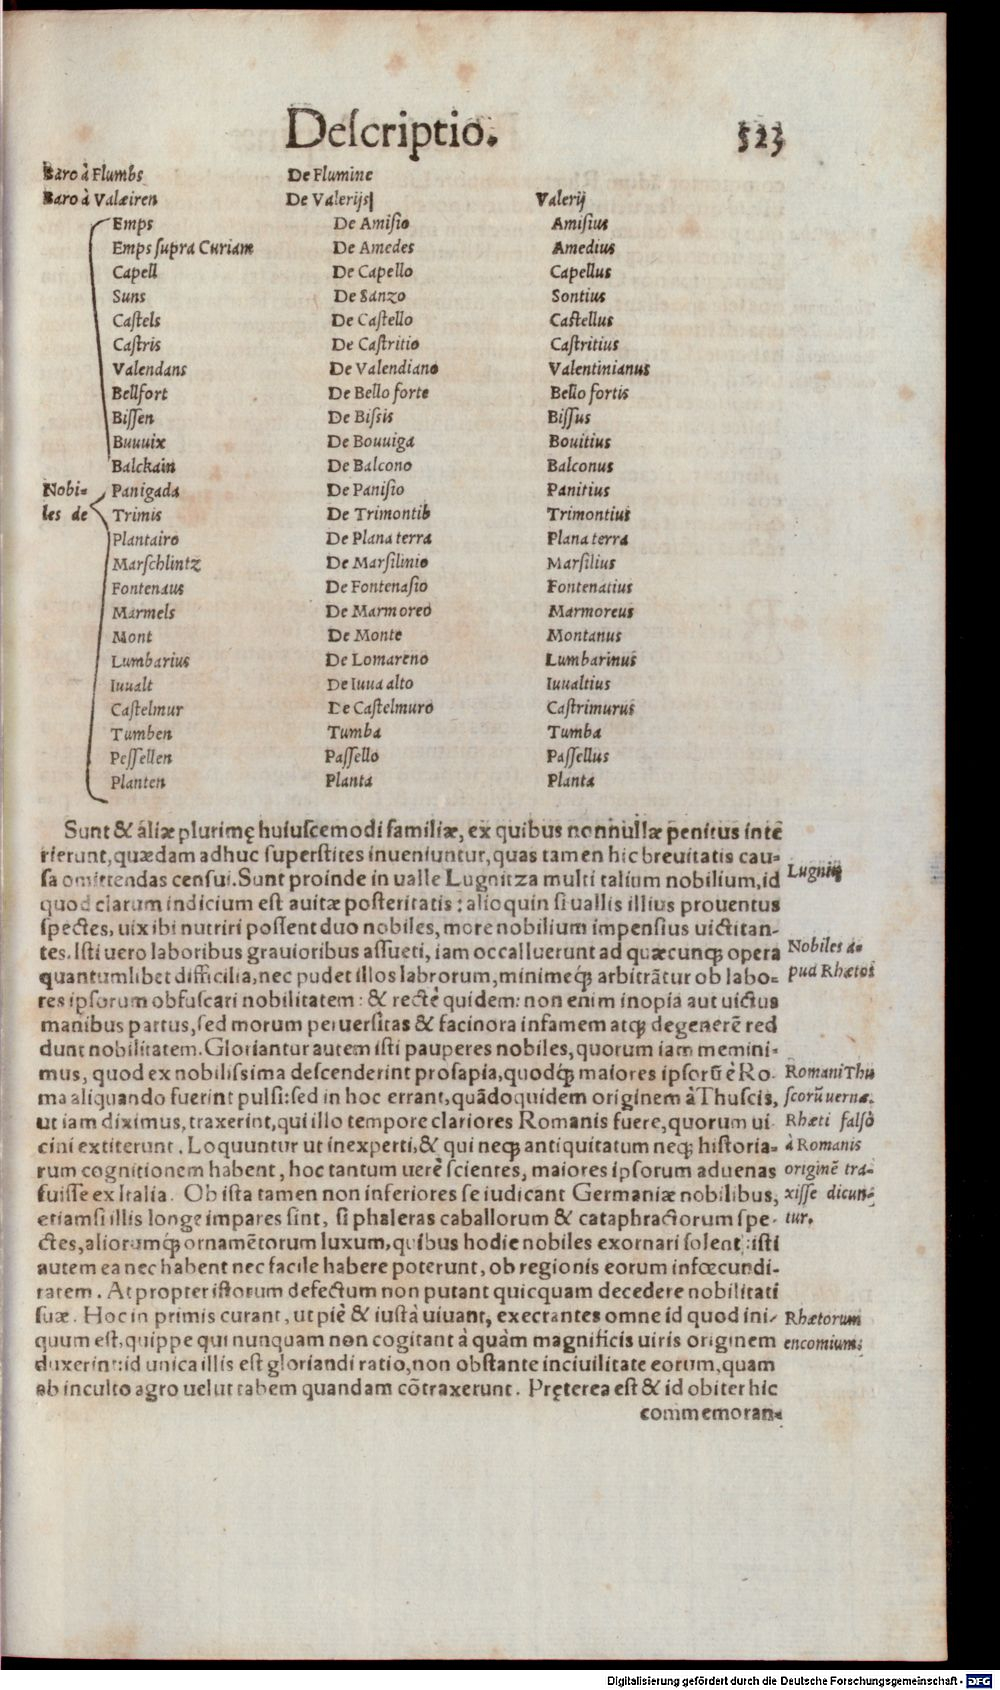 Deſcriptio. 523
Baro à Flumbs De Flumine
Baro à Valæiren De Valerijs Valerij
Emps De Amiſio Amiſius
Emps ſupra Curiam De Amedes Amedius
Capell De Capello Capellus
Suns De Sanzo Sontius
Caſtels De Caſtello Caſtellus
Caſtris De Caſtritio Caſtritius
Valendans De Valendiano Valentinianus
Bellfort De Bello forte Bello fortis
Biſſen De Biſsis Biſſus
Buuuix De Bouuiga Bouitius
Balckain De Balcono Balconus
Nobi- Panigada De Paniſio Panitius
les de Trimis De Trimontib Trimontius
Plantairo De Plana terra Plana terra
Marſchlintz De Marſilinio Marſilius
Fontenaus De Fontenaſio Fontenatius
Marmels De Marmoreo Marmoreus
Mont De Monte Montanus
Lumbarius De Lomareno Lumbarinus
Iuualt De Iuua alto Iuualtius
Caſtelmur De Caſtelmuro Caſtrimurus
Tumben Tumba Tumba
Peſſellen Paſſello Paſſellus
Planten Planta Planta
Sunt & aliæ plurimę huiuſcemodi familiæ, ex quibus nonnullæ penitus intē
rierunt, quædam adhuc ſuperſtites inueniuntur, quas tamen hic breuitatis cau-
ſa omittendas cenſui. Sunt proinde in ualle Lugnitza multi talium nobilium, id
Lugnitz
quod clarum indicium eſt auitæ poſteritatis: alioquin ſi uallis illius prouentus
ſpectes, uix ibi nutriri poſſent duo nobiles, more nobilium impenſius uictitan-
tes. Iſti uero laboribus grauioribus aſſueti, iam occalluerunt ad quæcunq; opera
Nobiles a-
quantumlibet difficilia, nec pudet illos labrorum, minimeq́; arbitrātur ob labo-
pud Rhætos
res ipſorum obfuſcari nobilitatem: & rectè quidem: non enim inopia aut uictus
manibus partus, ſed morum peruerſitas & facinora infamem atq; degenerē red
dunt nobilitatem. Gloriantur autem iſti pauperes nobiles, quorum iam memini-
mus, quod ex nobiliſsima deſcenderint proſapia, quodq́; maiores ipſorū è Ro-
Romani Thu
ma aliquando fuerint pulſi: ſed in hoc errant, quādoquidem originem à Thuſcis,
ſcorū uernæ.
ut iam diximus, traxerint, qui illo tempore clariores Romanis fuere, quorum ui-
Rhæti falſò
cini extiterunt. Loquuntur ut inexperti, & qui neq; antiquitatum neq; hiſtoria-
à Romanis
rum cognitionem habent, hoc tantum uerè ſcientes, maiores ipſorum aduenas
originē tra-
fuiſſe ex Italia. Ob iſta tamen non inferiores ſe iudicant Germaniæ nobilibus,
xiſſe dicun-
etiamſi illis longe impares ſint, ſi phaleras caballorum & cataphractorum ſpe-
tur.
ctes, aliorumq́; ornamētorum luxum, quibus hodie nobiles exornari ſolent: iſti
autem ea nec habent nec facile habere poterunt, ob regionis eorum infœcundi-
tatem. At propter iſtorum defectum non putant quicquam decedere nobilitati
ſuæ. Hoc in primis curant, ut piè & iuſtà uiuant, execrantes omne id quod ini-
Rhætorum
quum eſt, quippe qui nunquam non cogitant à quàm magnificis uiris originem
encomium.
duxerint: id unica illis eſt gloriandi ratio, non obſtante inciuilitate eorum, quam
ob inculto agro uelut tabem quandam cōtraxerunt. Pręterea eſt & id obiter hic
commemoran-
Digitalisierung gefördert durch die Deutsche Forschungsgemeinschaft - DFG